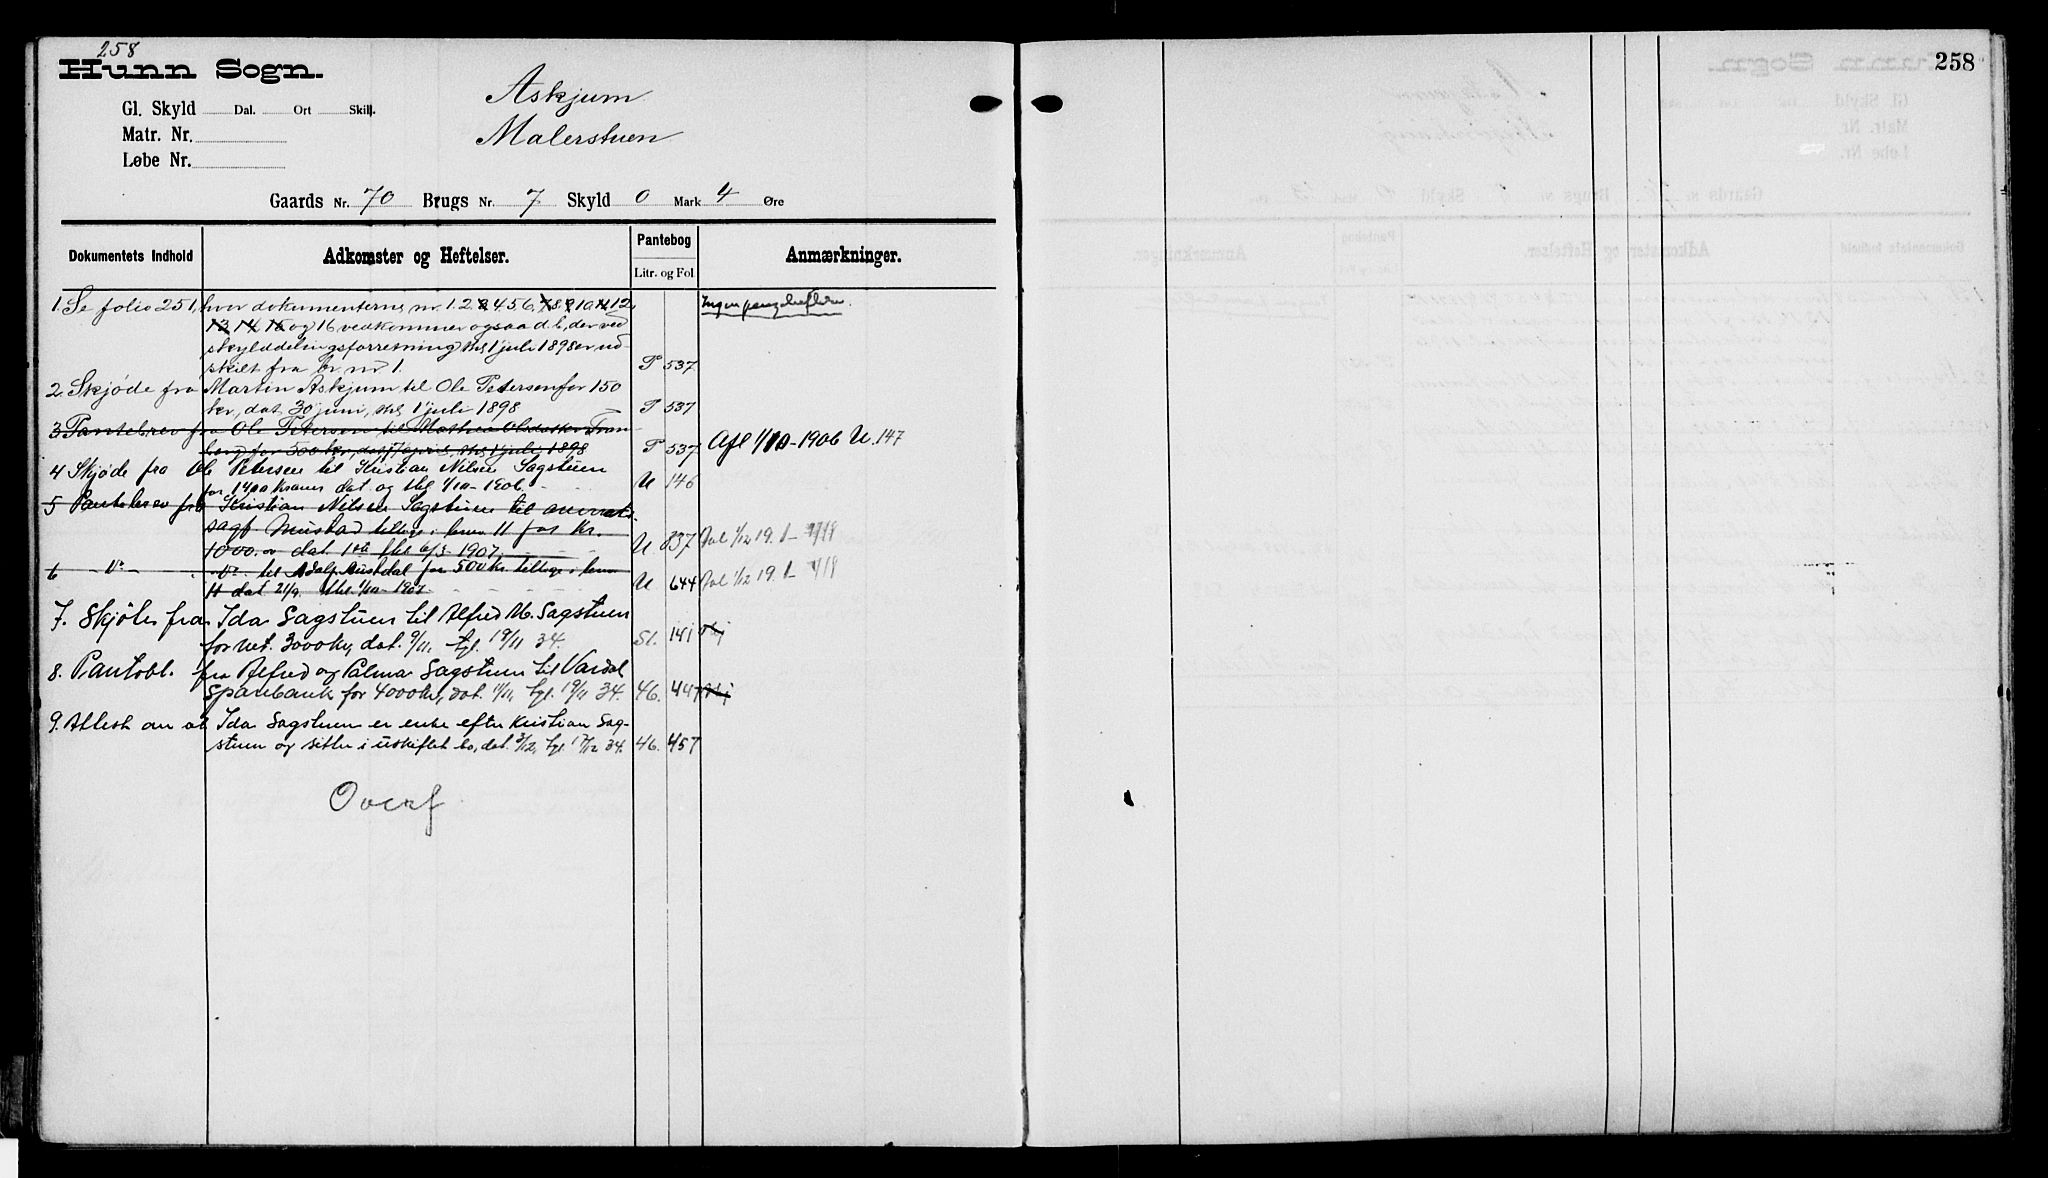 258
258
Hunn Sogn.
Askjum
Malerstuen
Gl. Skyld Dal. Ort Skill.
Matr. Nr.
Løbe Nr.
Gaards Nr. 70 Brugs Nr. 7 Skyld 0 Mark 4 Øre
Dokumentets Indhold Adkomster og Heftelser. Pantebog Anmærkninger.
Litr. og Fol.
1. Se folio 251, hvor dokumenterne nr. 1. 2. 3 4. 5 6. 7 8 9 10 11 12 Ingen pengeheftelser.
13 14 15 og 16 vedkommer ogsaa d. b., der ved
skylddelingsforretning thl 1 juli 1898 er ud-
skilt fra br. nr 1. P 537
2. Skjøde fra Martin Askjum til Ole Petersen for 150
kr, dat 30 juni, thl 1 juli 1898 P 537
3 Pantebrev fra Ole Petersen til Mathea Olsdatter Tran-
berg for 500 kr, dat april, thl 1 juli 1898 P 537 Afl 1/10-1906 U. 147
4 Skjøde fra Ole Petersen til Kristian Nilsen Sagstuen
for 1400 kroner dat og thl 1/10-1906. U 146
5 Pantebrev fra Kristian Nilsen Sagstuen til overrets-
sagf. Mustad tillige i brnr 11 for kr.
1000.00 dat thl 6/3-1907. U 837
6 -"- -"- til Adolf Austdal for 500 kr. tillige i brnr
11 dat 21/9 thl 1/10-1907. U 644
7. Skjøte fra Ida Sagstuen til Alfred M. Sagstuen
for vet. 3000 kr, dat. 9/11, tgl. 19/11 34. 141
8. Pantobl. fra Alfred og Palma Sagstuen til Vardal
Sparebank for 4000 kr, dat. 11/11, tgl. 19/11 34. 46. 447
9. Attest om at Ida Sagstuen er enke efter Kristian Sag-
stuen og sitter i uskiftet bo, dat. 3/12, tgl. 17/12 34. 46. 457
Overf